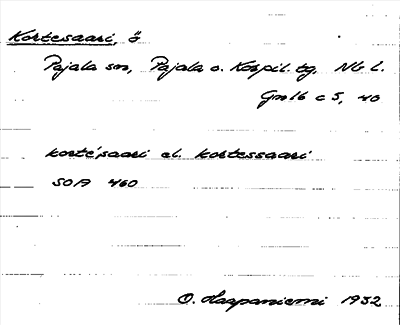 Kortesaari, ö
Pajala sn, Pajala o. Korpil. tg, Nb l.
Gnlb c 5, 40
korte̍saari el. kortessaari
SOA 460
O. Haapaniemi 1932